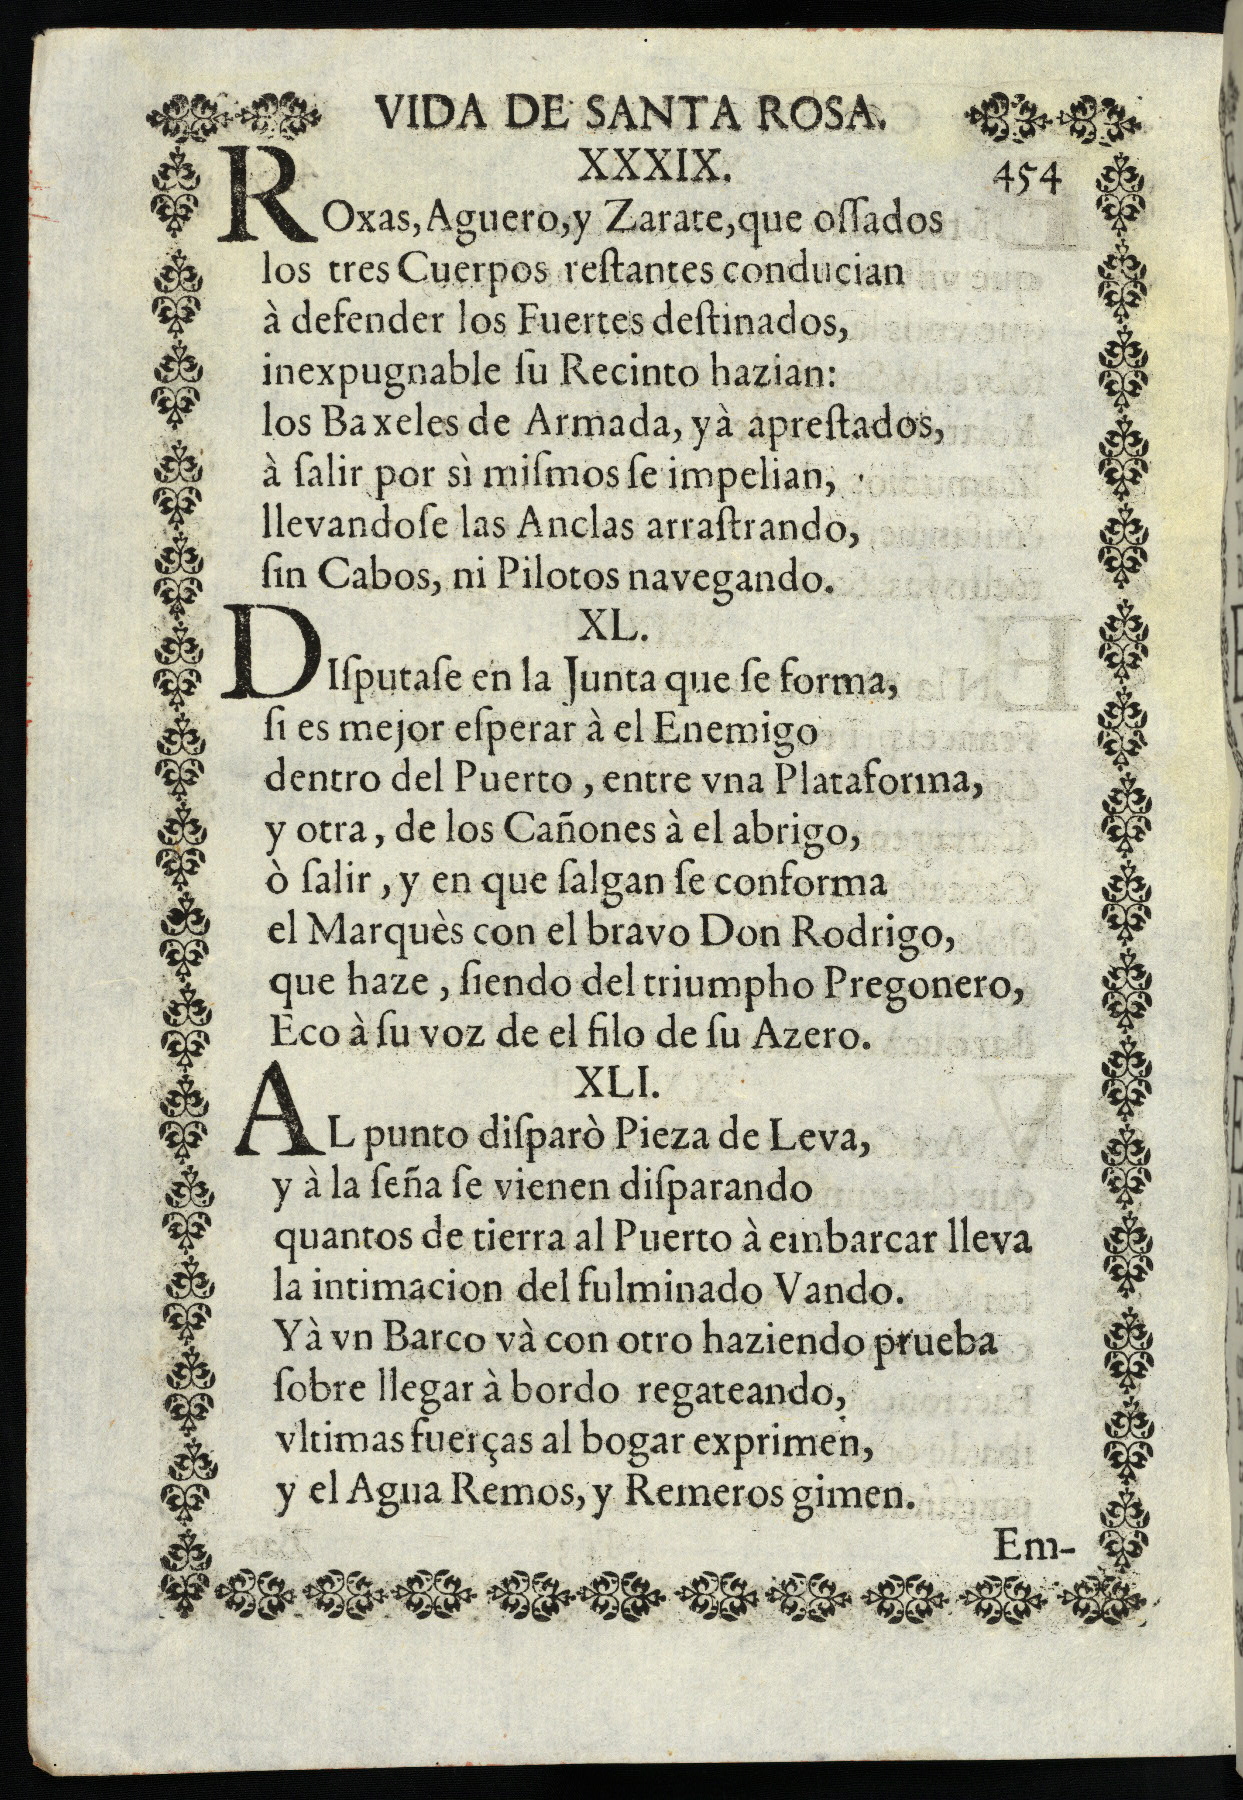 VIDA DE SANTA ROSA.
XXXIX. 454
ROxas, Aguero, y Zarate, que oſſados
los tres Cuerpos reſtantes conducian
à defender los Fuertes deſtinados,
inexpugnable ſu Recinto hazian:
los Baxeles de Armada, yà apreſtados,
à ſalir por sì miſmos ſe impelian,
llevandoſe las Anclas arraſtrando,
ſin Cabos, ni Pilotos navegando.
XL.
DIſputaſe en la Junta que ſe forma,
ſi es mejor eſperar à el Enemigo
dentro del Puerto, entre vna Plataforma,
y otra, de los Cañones à el abrigo,
ò ſalir, y en que ſalgan ſe conforma
el Marquès con el bravo Don Rodrigo,
que haze, ſiendo del triumpho Pregonero,
Eco à ſu voz de el filo de ſu Azero.
XLI.
AL punto diſparò Pieza de Leva,
y à la ſeña ſe vienen diſparando
quantos de tierra al Puerto à embarcar lleva
la intimacion del fulminado Vando.
Yà vn Barco và con otro haziendo prueba
ſobre llegar à bordo regateando,
vltimas fuerças al bogar exprimen,
y el Agua Remos, y Remeros gimen.
Em-